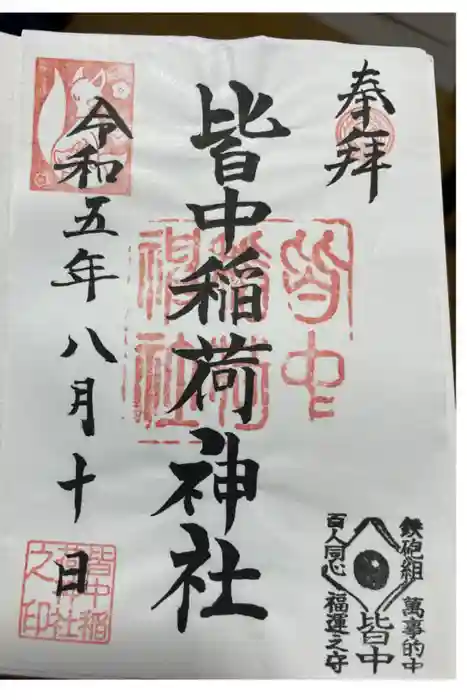 奉拝
皆中稲荷神社
令和五年八月十日
皆中稲荷神社
皆中稲荷社之印
鉄砲組 萬事的中
皆中
百人同心 福運之守